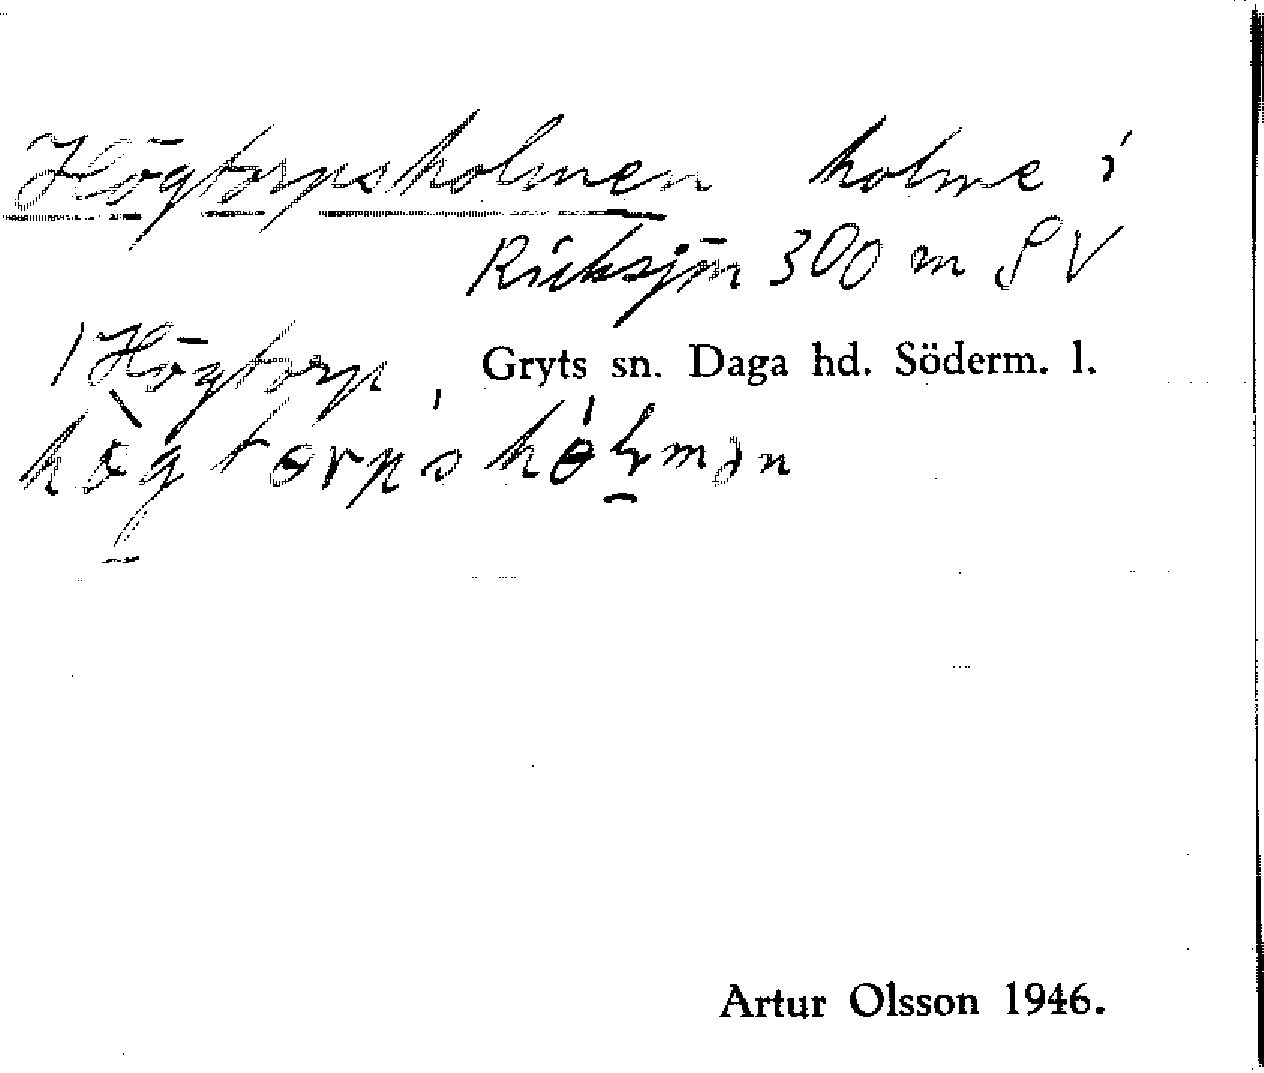 Högtorpsholmen holme i
Ricksjön 300 m SV
1 Högtorp, Gryts sn. Daga hd. Söderm. l.
Artur Olsson 1946.